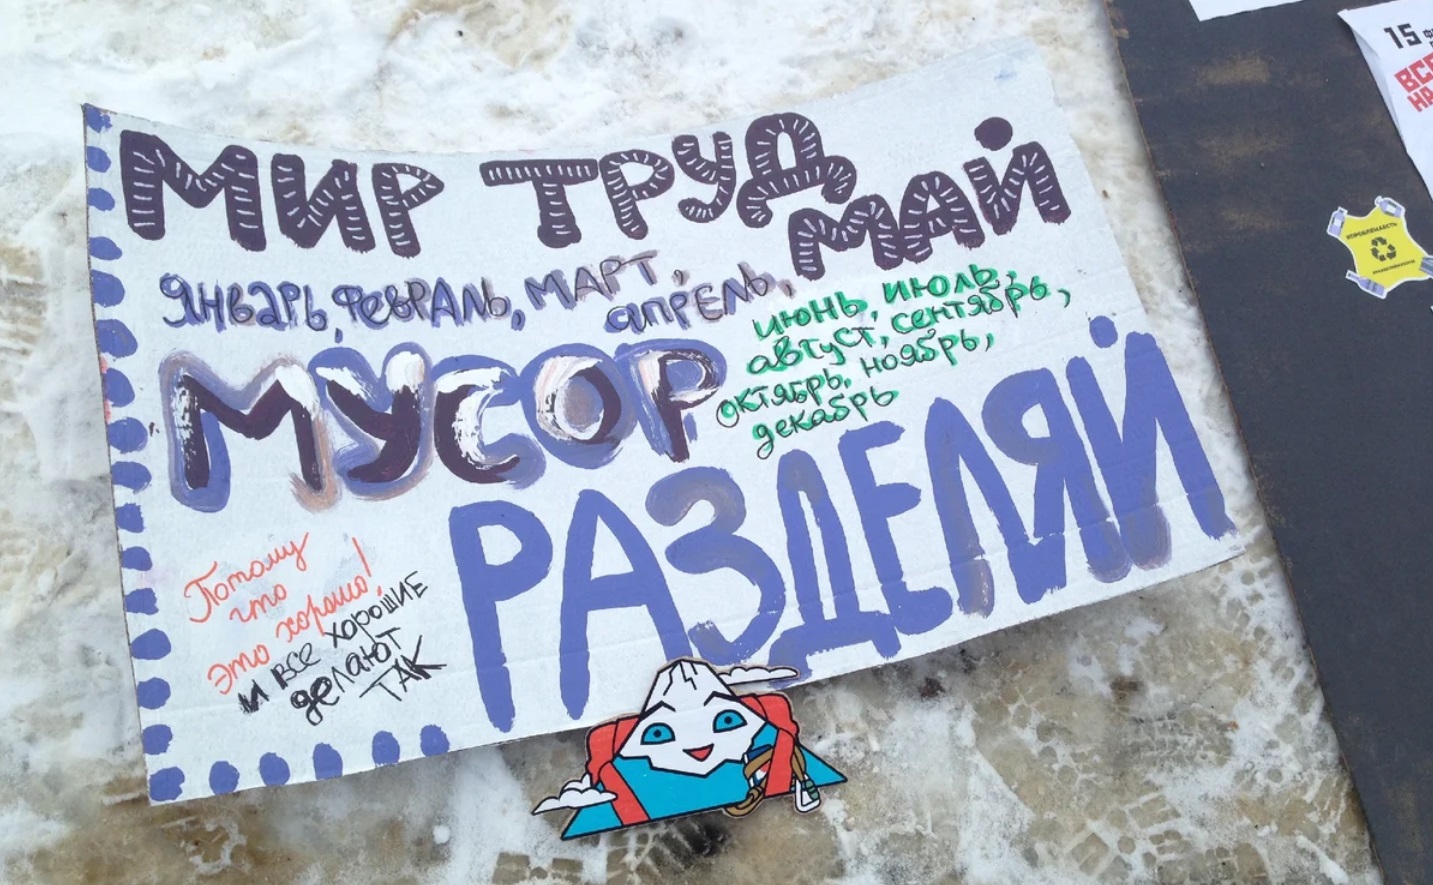 МИР ТРУД
МАЙ
ЯНВАРЬ, ФЕВРАЛЬ, МАРТ,
АПРЕЛЬ,
ИЮНЬ, ИЮЛЬ,
АВГУСТ, СЕНТЯБРЬ,
ОКТЯБРЬ, НОЯБРЬ,
декабрь
МУСОР
РАЗДЕЛЯЙ
Потому
что
это хорошо!
И ВСЕ ХОРОШИЕ
ДЕЛАЮТ
ТАК
15
ВСЕ
НА